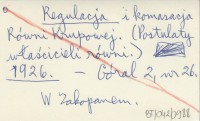 Regulacja i komasacja
Równi Krupowej. (Postulaty
właścicieli równi.)
1926. – Góral 2, nr 26.
W Zakopanem.
BJ/042/988